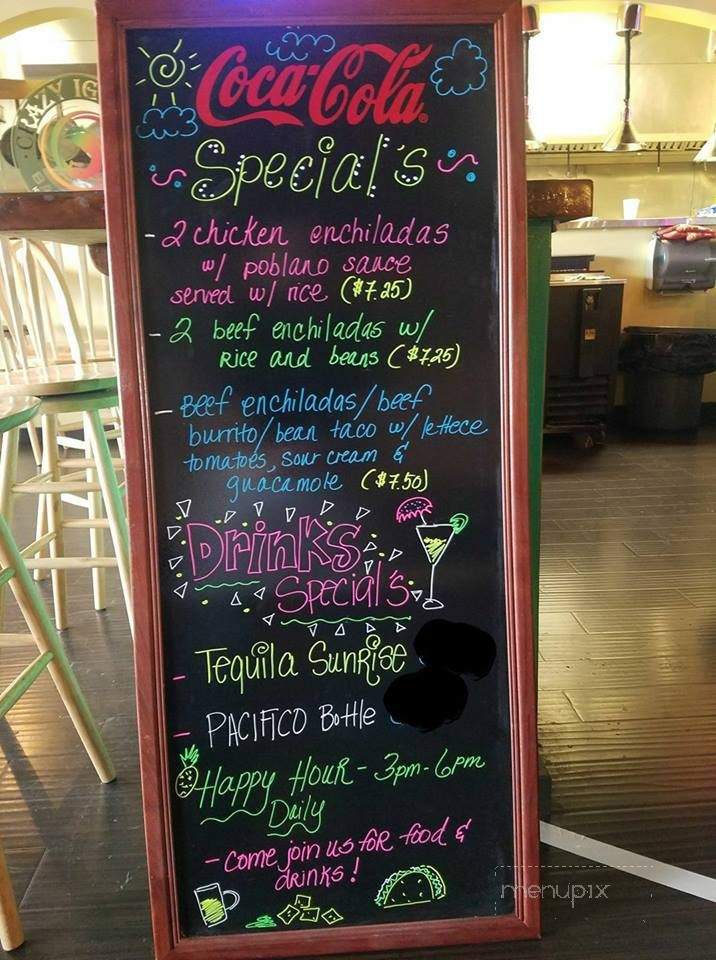 CRAZY IG
Coca-Cola
Special's
- 2 chicken enchiladas
w/ poblano sauce
served w/ rice ($7.25)
- 2 beef enchiladas w/
Rice and beans ($7.25)
- Beef enchiladas/beef
burrito/bean taco w/ lettece
tomatoes, sour cream &
guacamole ($7.50)
Drinks
Special's
- Tequila Sunrise
- PACIFICO Bottle
Happy Hour - 3pm-6pm
Daily
- come join us for food &
drinks!
menupix